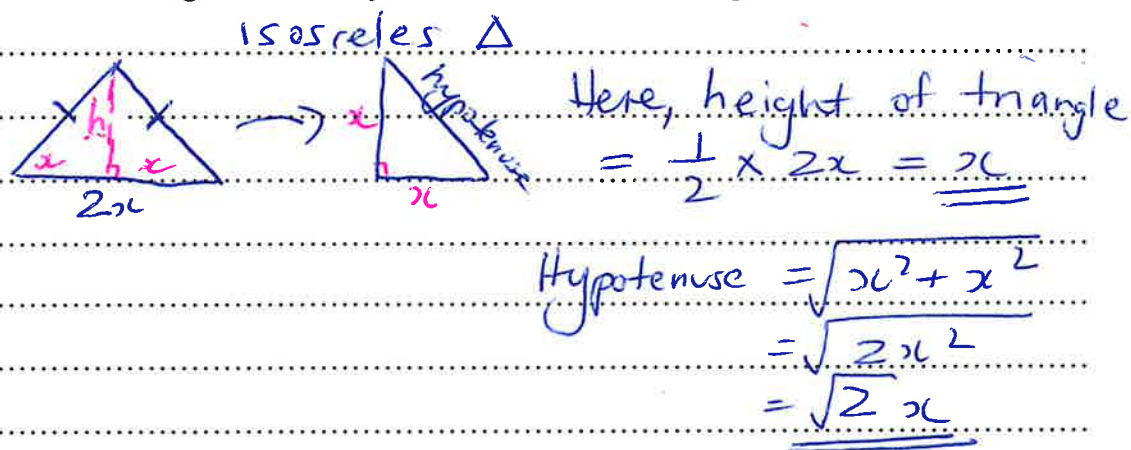 isosceles Δ
h
x x
2x
x
hypotenuse
x
Here, height of triangle
= 1/2 × 2x = x
Hypotenuse = √(x² + x²)
= √(2x²)
= √2 x